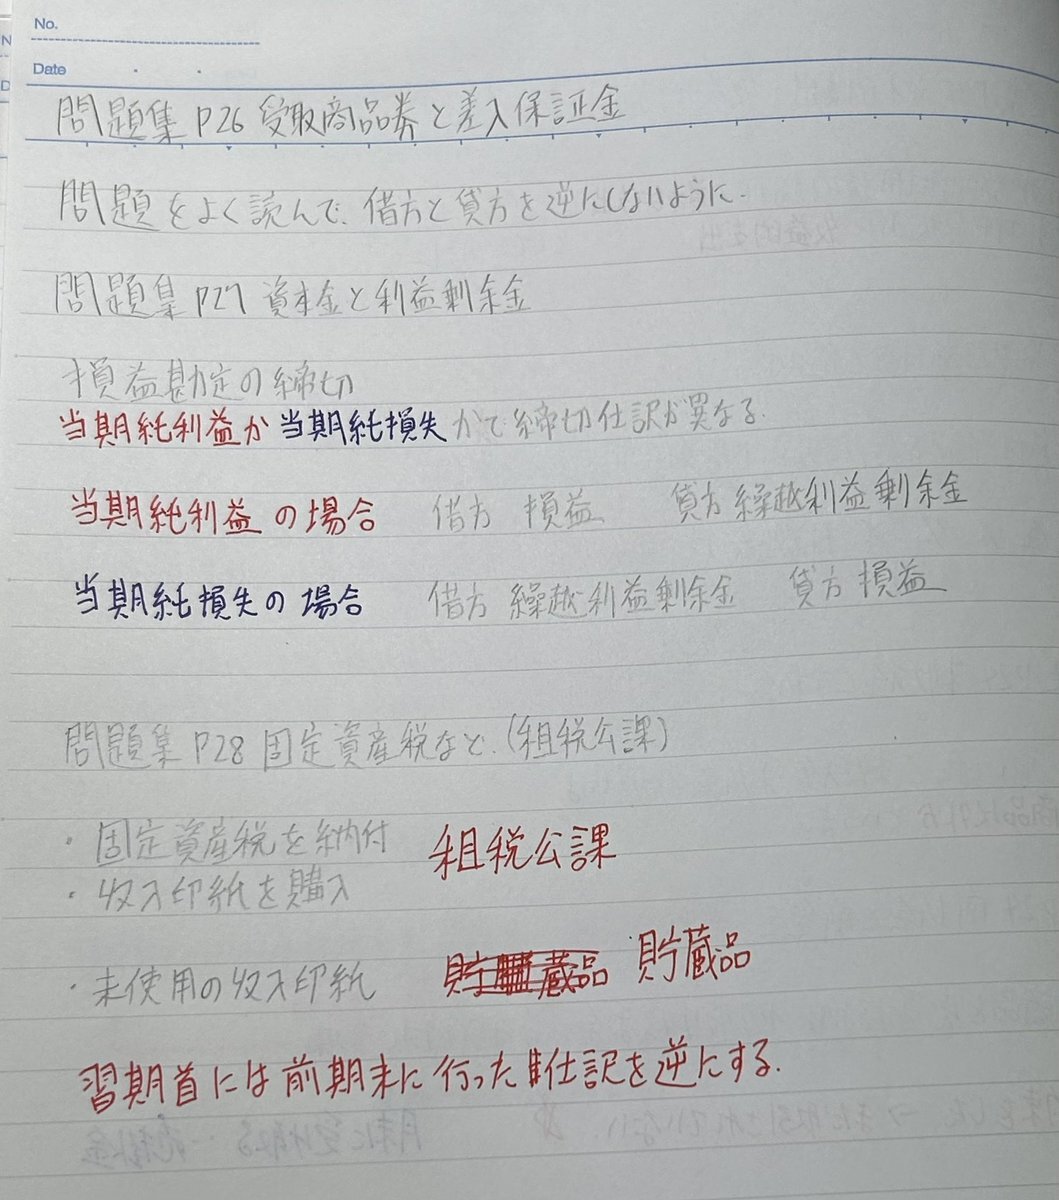 No.
Date
問題集 P26 受取商品券と差入保証金
問題をよく読んで、借方と貸方を逆にしないように.
問題集 P27 資本金と利益剰余金
損益勘定の締切
当期純利益か当期純損失かで締切仕訳が異なる.
当期純利益の場合 借方 損益 貸方 繰越利益剰余金
当期純損失の場合 借方 繰越利益剰余金 貸方 損益
問題集 P28 固定資産税など.(租税公課)
・固定資産税を納付 租税公課
・収入印紙を購入
・未使用の収入印紙 貯蔵品
習期首には前期末に行った仕訳を逆にする.